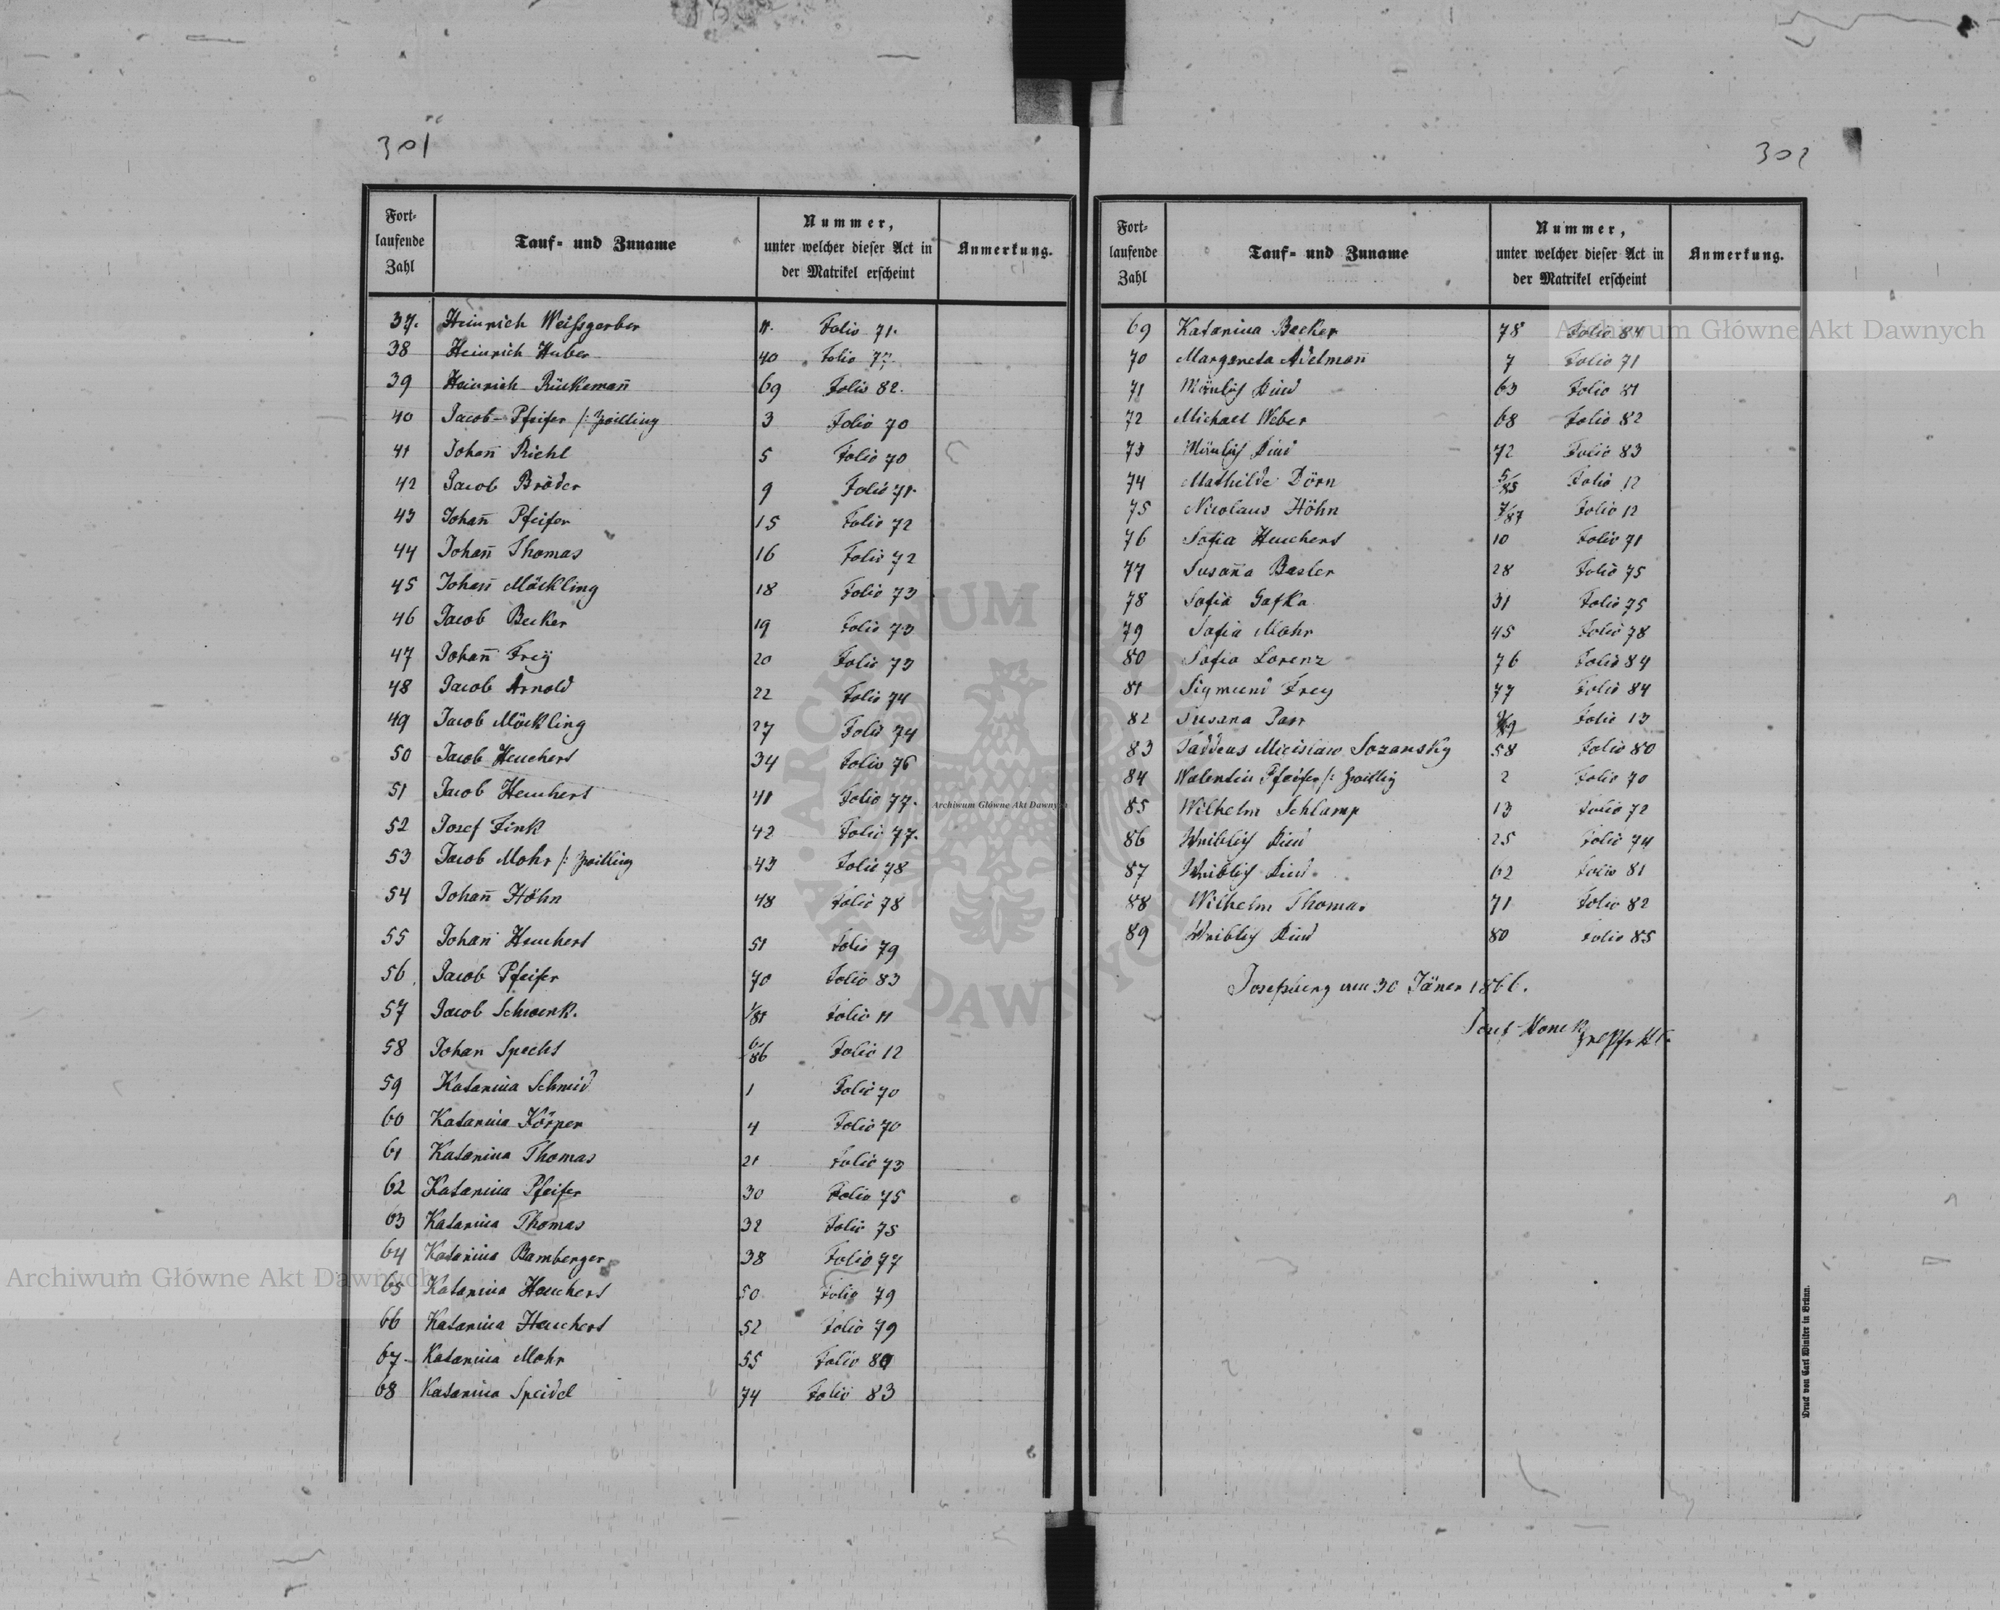 301
Fort-
laufende
Zahl
Tauf- und Zuname
Nummer,
unter welcher dieser Act in
der Matrikel erscheint
Anmerkung.
37. Heinrich Weißgerber 11. Folio 71.
38 Heinrich Huber 40 Folio 77.
39 Heinrich Rückemañ 69 Folio 82.
40 Jacob Pfeifer /: Zwilling 3 Folio 70
41 Johañ Richl 5 Folio 70
42 Jacob Bröder 9 Folio 71.
43 Johañ Pfeifer 15 Folio 72
44 Johañ Thomas 16 Folio 72
45 Johañ Möckling 18 Folio 73
46 Jacob Becker 19 Folio 73
47 Johañ Freÿ 20 Folio 73
48 Jacob Arnold 22 Folio 74
49 Jacob Möckling 27 Folio 74
50 Jacob Heuchert 34 Folio 76
51 Jacob Heuchert 41 Folio 77.
52 Josef Fink 42 Folio 77.
53 Jacob Mohr /: Zwilling 43 Folio 78
54 Johañ Höhn 48 Folio 78
55 Johañ Heuchert 51 Folio 79
56. Jacob Pfeifer 70 Folio 83
57 Jacob Schwenk. 1/81 Folio 11
58 Johan Specht 6/86 Folio 12
59 Katarina Schmid 1 Folio 70
60 Katarina Körper 4 Folio 70
61 Katarina Thomas 21 Folio 73
62 Katarina Pfeifer 30 Folio 75
63 Katarina Thomas 32 Folio 75
64 Katarina Bamberger 38 Folio 77
65 Katarina Heuchert 50 Folio 79
66 Katarina Heuchert 52 Folio 79
67. Katarina Mohr 55 Folio 80
68 Katarina Speidel 74 Folio 83
302
Fort-
laufende
Zahl
Tauf- und Zuname
Nummer,
unter welcher dieser Act in
der Matrikel erscheint
Anmerkung.
69 Katarina Becker 78 Folio 84
70 Margareta Adelmañ 7 Folio 71
71 Männlich Kind 63 Folio 81
72 Michael Weber 68 Folio 82
73 Männlich Kind 72 Folio 83
74 Mathilde Dörn 5/85 Folio 12
75 Nicolaus Höhn 7/87 Folio 12
76 Sofia Heuchert 10 Folio 71
77 Susaña Basler 28 Folio 75
78 Sofia Gafka 31 Folio 75
79 Sofia Mohr 45 Folio 78
80 Sofia Lorenz 76 Folio 84
81 Sigmund Frey 77 Folio 84
82 Susana Parr Folio 13
83 Taddeus Micislaw Sozansky 58 Folio 80
84 Walentin Pfeifer /: Zwillig 2 Folio 70
85 Wilhelm Schlamp 13 Folio 72
86 Weiblich Kind 25 Folio 74
87 Weiblich Kind. 62 Folio 81
88 Wilhelm Thomas 71 Folio 82
89 Weiblich Kind 80 Folio 85
Josefsberg am 30 Jäner 1866.
Josef
Druck von Carl Winiker in Brünn.
Archiwum Główne Akt Dawnych
Archiwum Główne Akt Dawnych
Archiwum Główne Akt Dawnych